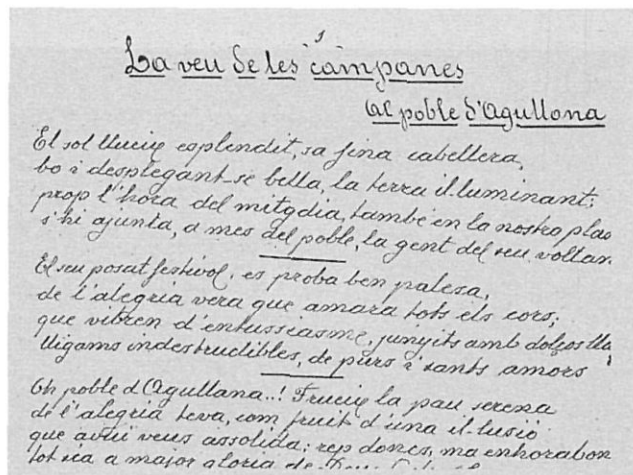 La veu de les campanes
al poble d'Agullona
El sol lluciy esplendit, sa fina cabellera,
bo i desplegant-se bella, la terra il·luminant;
prop l'hora del mitgdia, també en la nostra plas
s'hi ajunta, a mes del poble, la gent del seu voltan
El seu posat festivol, es proba ben palesa,
de l'alegria vera que amara tots els cors;
que vibren d'entussiasme, junyits amb dolços lla
lligams indestructibles, de purs i sants amors
Oh poble d'Agullana..! Fruciy la pau serena
de l'alegria teva, com fruit d'una il·lusió
que avui veus assolida; rep doncs, ma enhorabon
tot sia a major gloria de